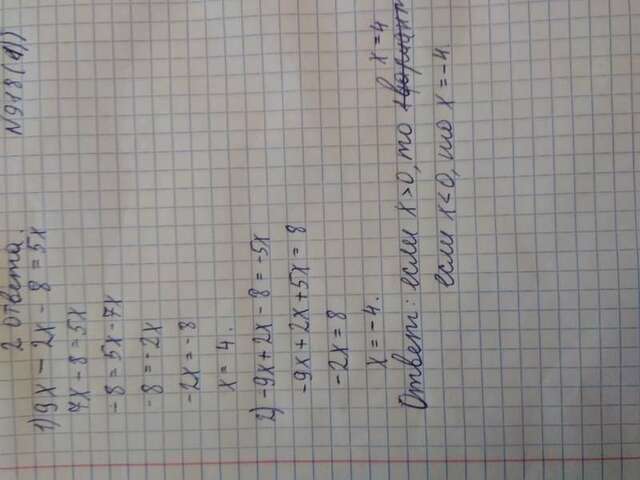 N918(1))
2 ответа.
1) 9x - 2x - 8 = 5x
7x - 8 = 5x
-8 = 5x - 7x
-8 = -2x
-2x = -8
x = 4.
2) -9x + 2x - 8 = -5x
-9x + 2x + 5x = 8
-2x = 8
x = -4.
Ответ: если x > 0, то x = 4
если x < 0, то x = -4